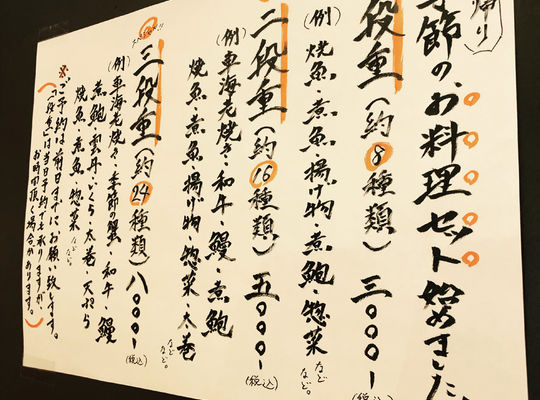 帰り)
季節のお料理セット始めました。
段重(約8種類)三〇〇〇-(税込)
(例)焼魚・煮魚・揚げ物・煮鮑・惣菜などなど。
二段重(約16種類)五〇〇〇-(税込)
(例)車海老焼き・和牛・鰻・煮鮑
焼魚・煮魚・揚げ物・惣菜・太巻などなど。
三段重(約24種類)八〇〇〇-(税込)
(例)車海老焼き・季節の蟹・和牛・鰻
煮鮑・雲丹・いくら・太巻・天ぷら
焼魚・煮魚・惣菜などなど。
※ご予約は前日までにお願い致します。
(「一段重」は当日予約も承りますが
お時間頂く場合があります。)